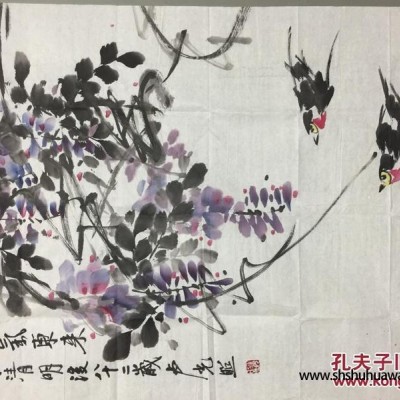 氣東来
清明後八十二歲
孔夫子旧
www.shshuhuawa
www.kongfz